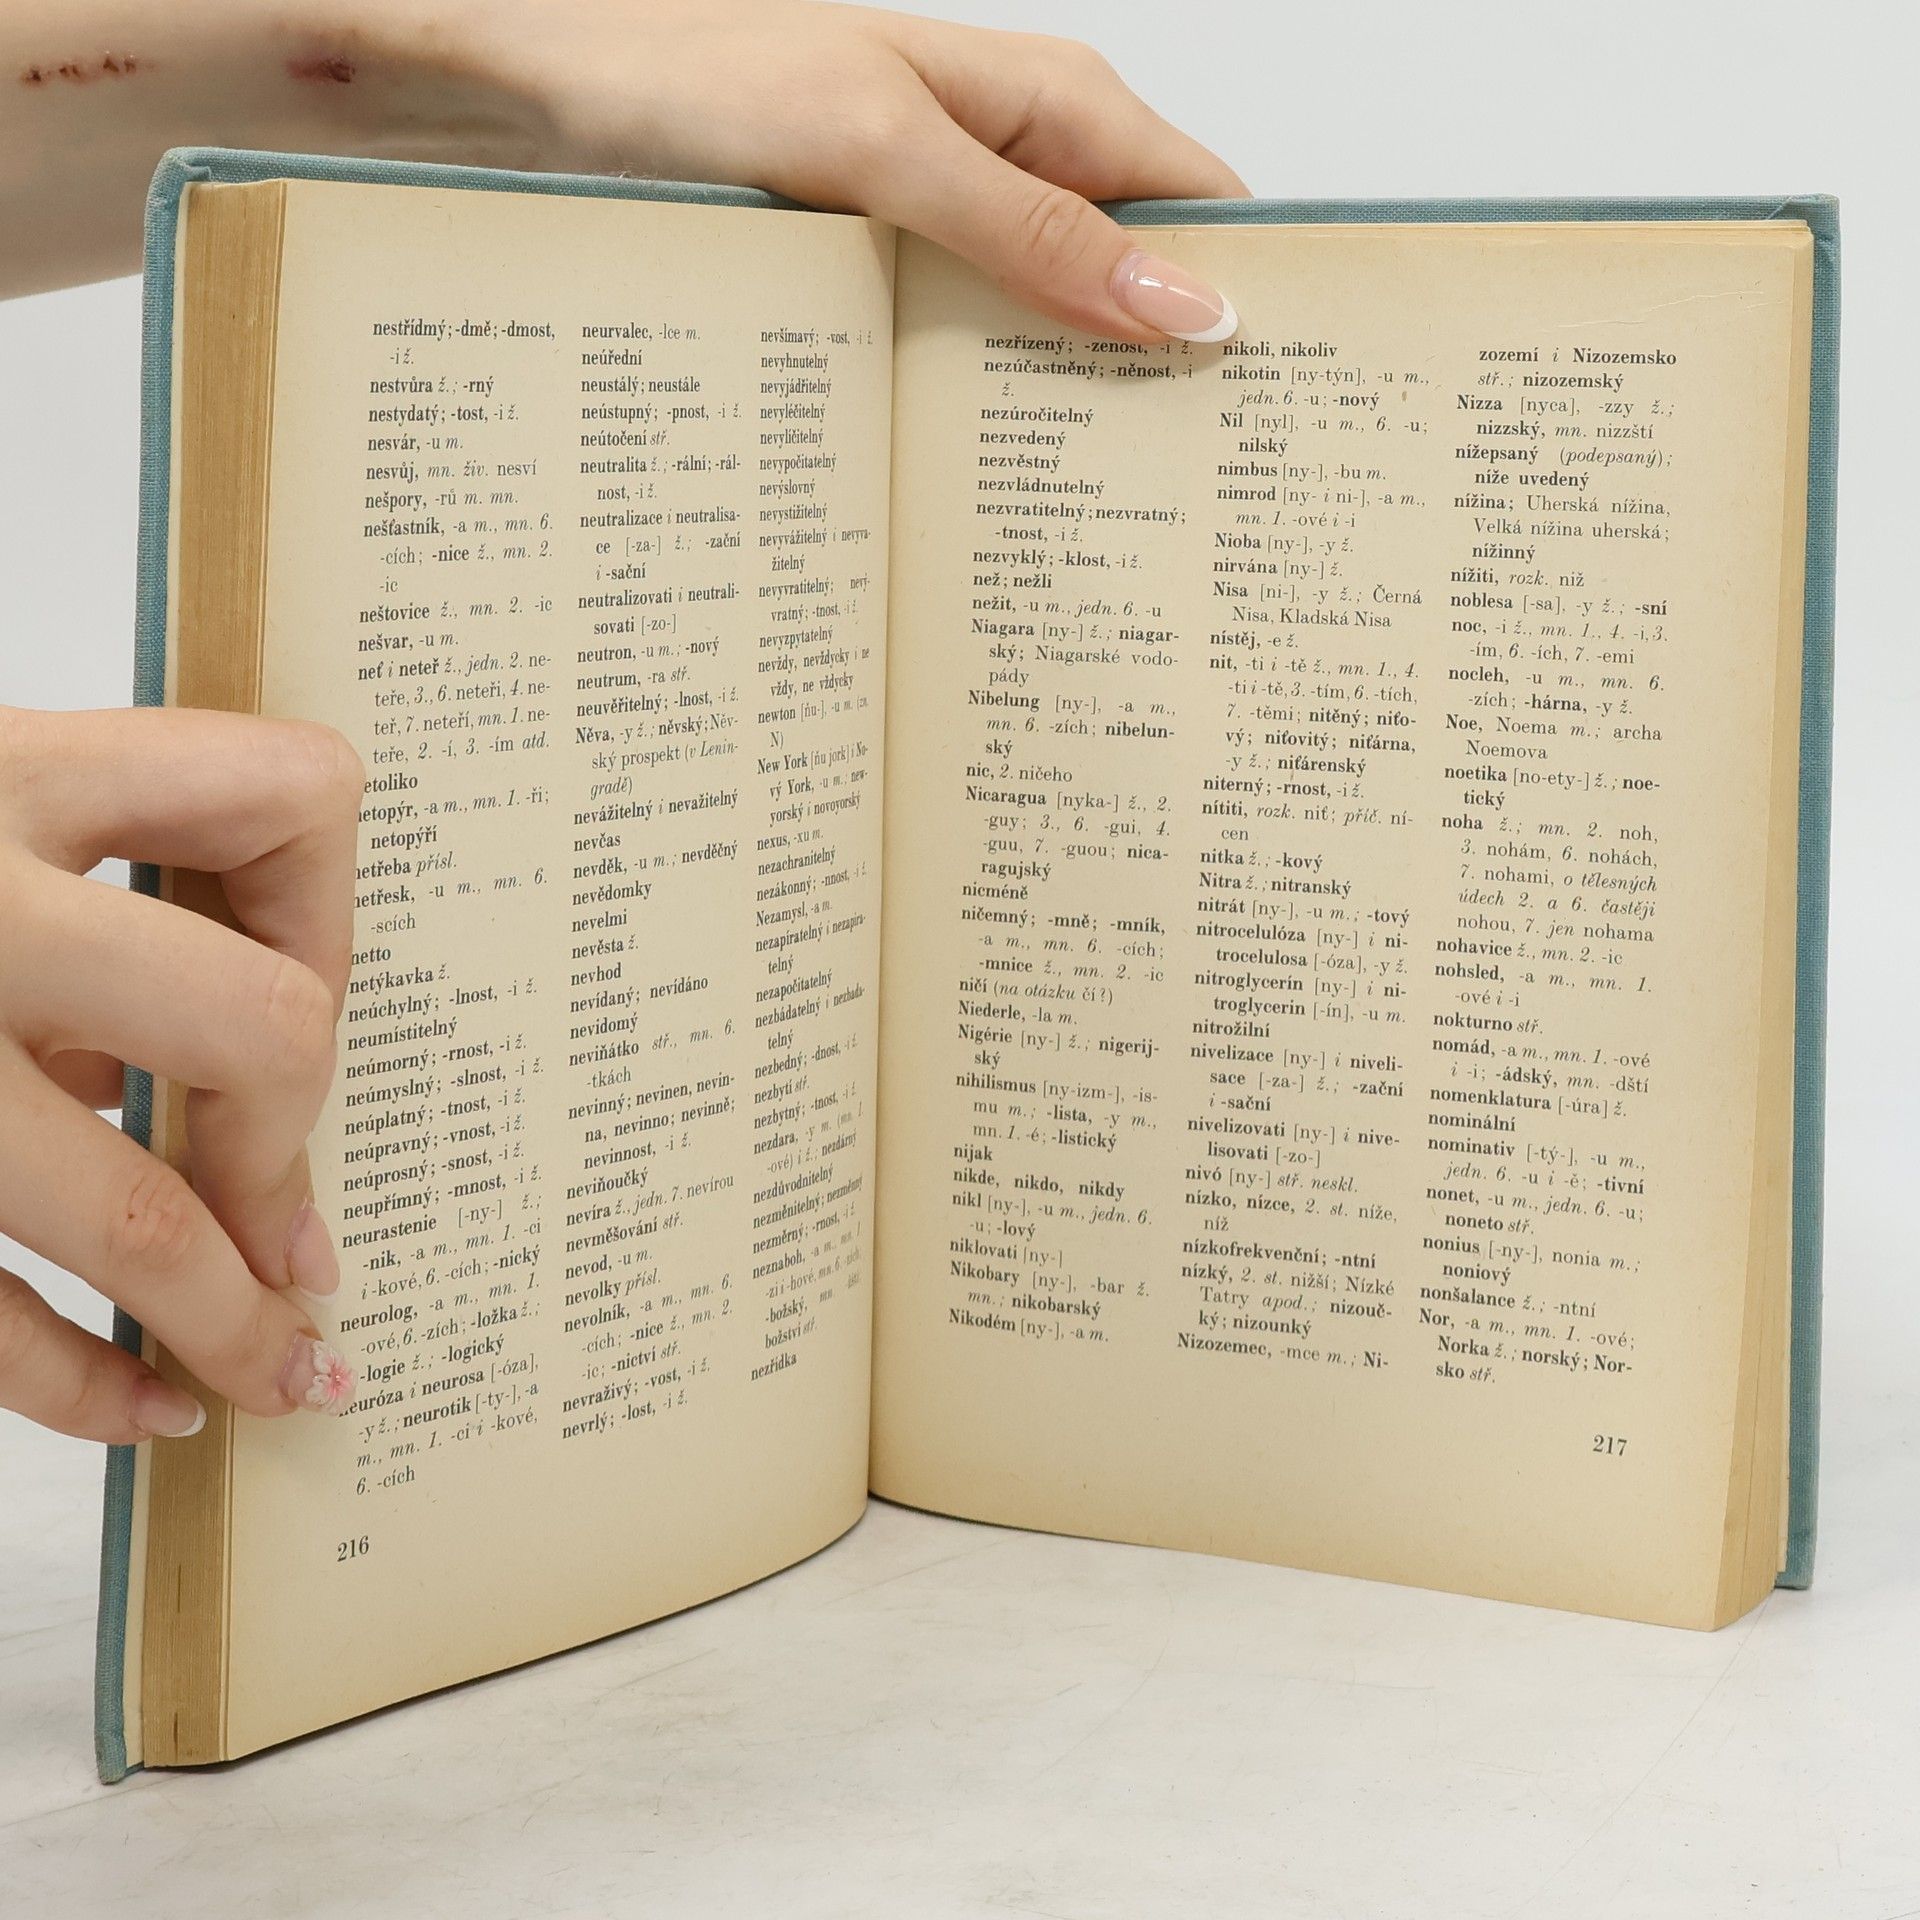 nestřídmý; -dmě; -dmost,
-i ž.
nestvůra ž.; -rný
nestydatý; -tost, -i ž.
nesvár, -u m.
nesvůj, mn. živ. nesví
nešpory, -rů m. mn.
nešťastník, -a m., mn. 6.
-cích; -nice ž., mn. 2.
-ic
neštovice ž., mn. 2. -ic
nešvar, -u m.
neť i neteř ž., jedn. 2. ne-
teře, 3., 6. neteři, 4. ne-
teř, 7. neteří, mn. 1. ne-
teře, 2. -í, 3. -ím atd.
etoliko
etopýr, -a m., mn. 1. -ři;
netopýří
netřeba přísl.
netřesk, -u m., mn. 6.
-scích
netto
netýkavka ž.
neúchylný; -lnost, -i ž.
neumístitelný
neúmorný; -rnost, -i ž.
neúmyslný; -slnost, -i ž.
neúplatný; -tnost, -i ž.
neúpravný; -vnost, -i ž.
neúprosný; -snost, -i ž.
neupřímný; -mnost, -i ž.
neurastenie [-ny-] ž.;
-nik, -a m., mn. 1. -ci
i -kové, 6. -cích; -nický
neurolog, -a m., mn. 1.
-ové, 6. -zích; -ložka ž.;
-logie ž.; -logický
neuróza i neurosa [-óza],
-y ž.; neurotik [-ty-], -a
m., mn. 1. -ci i -kové,
6. -cích
216
neurvalec, -lce m.
neúřední
neustálý; neustále
neústupný; -pnost, -i ž.
neútočení stř.
neutralita ž.; -rální; -rál-
nost, -i ž.
neutralizace i neutralisa-
ce [-za-] ž.; -zační
i -sační
neutralizovati i neutrali-
sovati [-zo-]
neutron, -u m.; -nový
neutrum, -ra stř.
neuvěřitelný; -lnost, -i ž.
Něva, -y ž.; něvský; Něv-
ský prospekt (v Lenin-
gradě)
nevážitelný i nevažitelný
nevčas
nevděk, -u m.; nevděčný
nevědomky
nevelmi
nevěsta ž.
nevhod
nevídaný; nevídáno
nevidomý
neviňátko stř., mn. 6.
-tkách
nevinný; nevinen, nevin-
na, nevinno; nevinně;
nevinnost, -i ž.
neviňoučký
nevíra ž., jedn. 7. nevírou
nevměšování stř.
nevod, -u m.
nevolky přísl.
nevolník, -a m., mn. 6.
-cích; -nice ž., mn. 2.
-ic; -nictví stř.
nevraživý; -vost, -i ž.
nevrlý; -lost, -i ž.
nevšímavý; -vost, -i ž.
nevyhnutelný
nevyjádřitelný
nevyléčitelný
nevylíčitelný
nevypočitatelný
nevýslovný
nevystižitelný
nevyvážitelný i nevyva-
žitelný
nevyvratitelný; nevý-
vratný; -tnost, -i ž.
nevyzpytatelný
nevždy, nevždycky i ne
vždy, ne vždycky
newton [ňu-], -u m. (zn.
N)
New York [ňu jork] i No-
vý York, -u m.; new-
yorský i novoyorský
nexus, -xu m.
nezachranitelný
nezákonný; -nnost, -i ž.
Nezamysl, -a m.
nezapíratelný i nezapira-
telný
nezapočitatelný
nezbádatelný i nezbada-
telný
nezbedný; -dnost, -i ž.
nezbytí stř.
nezbytný; -tnost, -i ž.
nezdara, -y m. (mn. 1.
-ové) i ž.; nezdárný
nezdůvodnitelný
nezměnitelný; nezměnný
nezměrný; -rnost, -i ž.
neznaboh, -a m., mn. 1.
-zi i -hové, mn. 6. -zích;
-božský, mn.
božství stř.
nezřídka
nezřízený; -zenost, -i ž.
nezúčastněný; -něnost, -i
ž.
nezúročitelný
nezvedený
nezvěstný
nezvládnutelný
nezvratitelný; nezvratný;
-tnost, -i ž.
nezvyklý; -klost, -i ž.
než; nežli
nežit, -u m., jedn. 6. -u
Niagara [ny-] ž.; niagar-
ský; Niagarské vodo-
pády
Nibelung [ny-], -a m.,
mn. 6. -zích; nibelun-
ský
nic, 2. ničeho
Nicaragua [nyka-] ž., 2.
-guy; 3., 6. -gui, 4.
-guu, 7. -guou; nica-
ragujský
nicméně
ničemný; -mně; -mník,
-a m., mn. 6. -cích;
-mnice ž., mn. 2. -ic
ničí (na otázku čí?)
Niederle, -la m.
Nigérie [ny-] ž.; nigerij-
ský
nihilismus [ny-izm-], -is-
mu m.; -lista, -y m.,
mn. 1. -é; -listický
nijak
nikde, nikdo, nikdy
nikl [ny-], -u m., jedn. 6.
-u; -lový
niklovati [ny-]
Nikobary [ny-], -bar ž.
mn.; nikobarský
Nikodém [ny-], -a m.
nikoli, nikoliv
nikotin [ny-týn], -u m.,
jedn. 6. -u; -nový
Nil [nyl], -u m., 6. -u;
nilský
nimbus [ny-], -bu m.
nimrod [ny- i ni-], -a m.,
mn. 1. -ové i -i
Nioba [ny-], -y ž.
nirvána [ny-] ž.
Nisa [ni-], -y ž.; Černá
Nisa, Kladská Nisa
nístěj, -e ž.
nit, -ti i -tě ž., mn. 1., 4.
-ti i -tě, 3. -tím, 6. -tích,
7. -těmi; nitěný; niťo-
vý; niťovitý; niťárna,
-y ž.; niťárenský
niterný; -rnost, -i ž.
nítiti, rozk. niť; příč. ní-
cen
nitka ž.; -kový
Nitra ž.; nitranský
nitrát [ny-], -u m.; -tový
nitrocelulóza [ny-] i ni-
trocelulosa [-óza], -y ž.
nitroglycerín [ny-] i ni-
troglycerin [-ín], -u m.
nitrožilní
nivelizace [ny-] i niveli-
sace [-za-] ž.; -zační
i -sační
nivelizovati [ny-] i nive-
lisovati [-zo-]
nivó [ny-] stř. neskl.
nízko, nízce, 2. st. níže,
níž
nízkofrekvenční; -ntní
nízký, 2. st. nižší; Nízké
Tatry apod.; nizouč-
ký; nizounký
Nizozemec, -mce m.; Ni-
zozemí i Nizozemsko
stř.; nizozemský
Nizza [nyca], -zzy ž.;
nizzský, mn. nizzští
nížepsaný (podepsaný);
níže uvedený
nížina; Uherská nížina,
Velká nížina uherská;
nížinný
nížiti, rozk. niž
noblesa [-sa], -y ž.; -sní
noc, -i ž., mn. 1., 4. -i, 3.
-ím, 6. -ích, 7. -emi
nocleh, -u m., mn. 6.
-zích; -hárna, -y ž.
Noe, Noema m.; archa
Noemova
noetika [no-ety-] ž.; noe-
tický
noha ž.; mn. 2. noh,
3. nohám, 6. nohách,
7. nohami, o tělesných
údech 2. a 6. častěji
nohou, 7. jen nohama
nohavice ž., mn. 2. -ic
nohsled, -a m., mn. 1.
-ové i -i
nokturno stř.
nomád, -a m., mn. 1. -ové
i -i; -ádský, mn. -dští
nomenklatura [-úra] ž.
nominální
nominativ [-tý-], -u m.,
jedn. 6. -u i -ě; -tivní
nonet, -u m., jedn. 6. -u;
noneto stř.
nonius [-ny-], nonia m.;
noniový
nonšalance ž.; -ntní
Nor, -a m., mn. 1. -ové;
Norka ž.; norský; Nor-
sko stř.
217